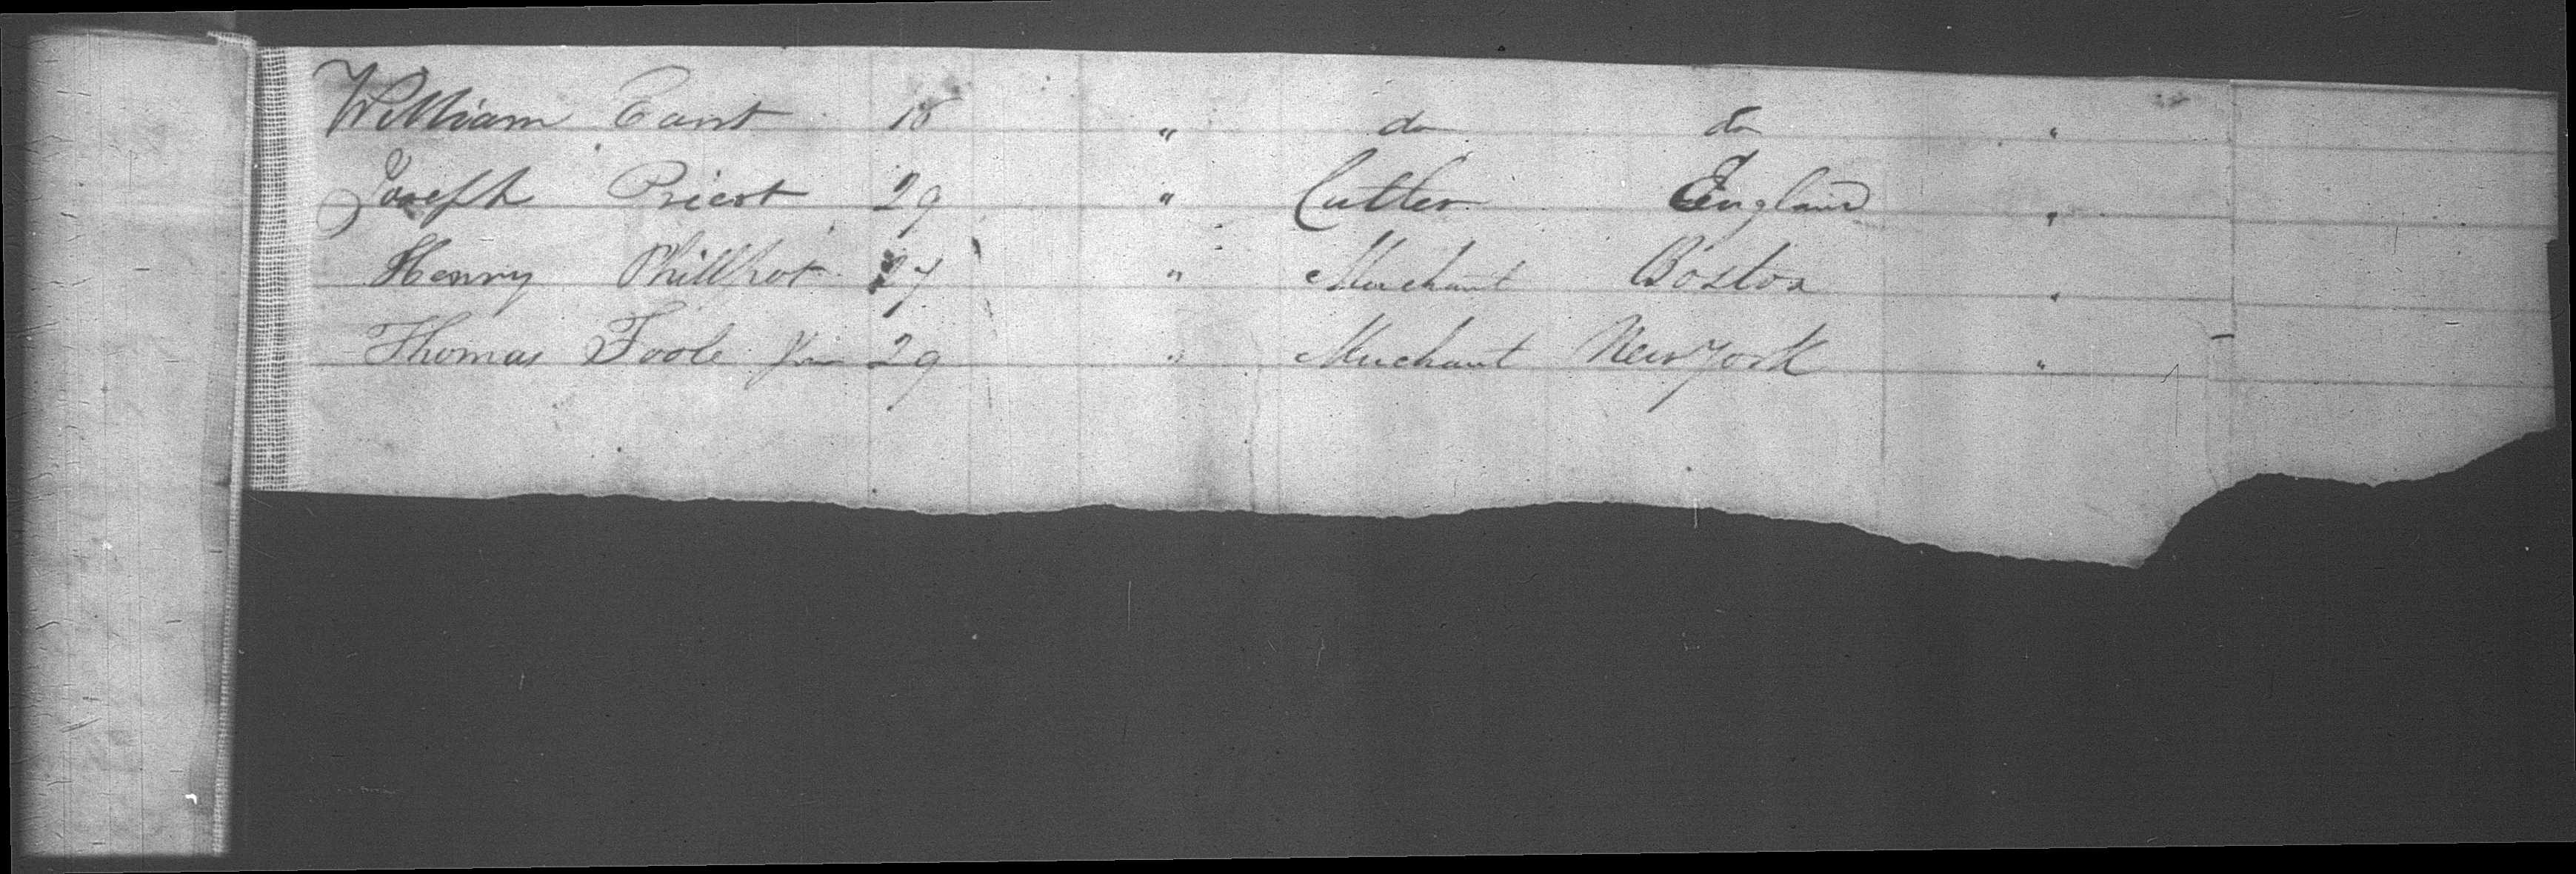 William Cant 18 " do do "
Joseph Priest 29 " Cutler England "
Henry Phillpot 27 " Merchant Boston "
Thomas Toole Jun 29 " Merchant New York "